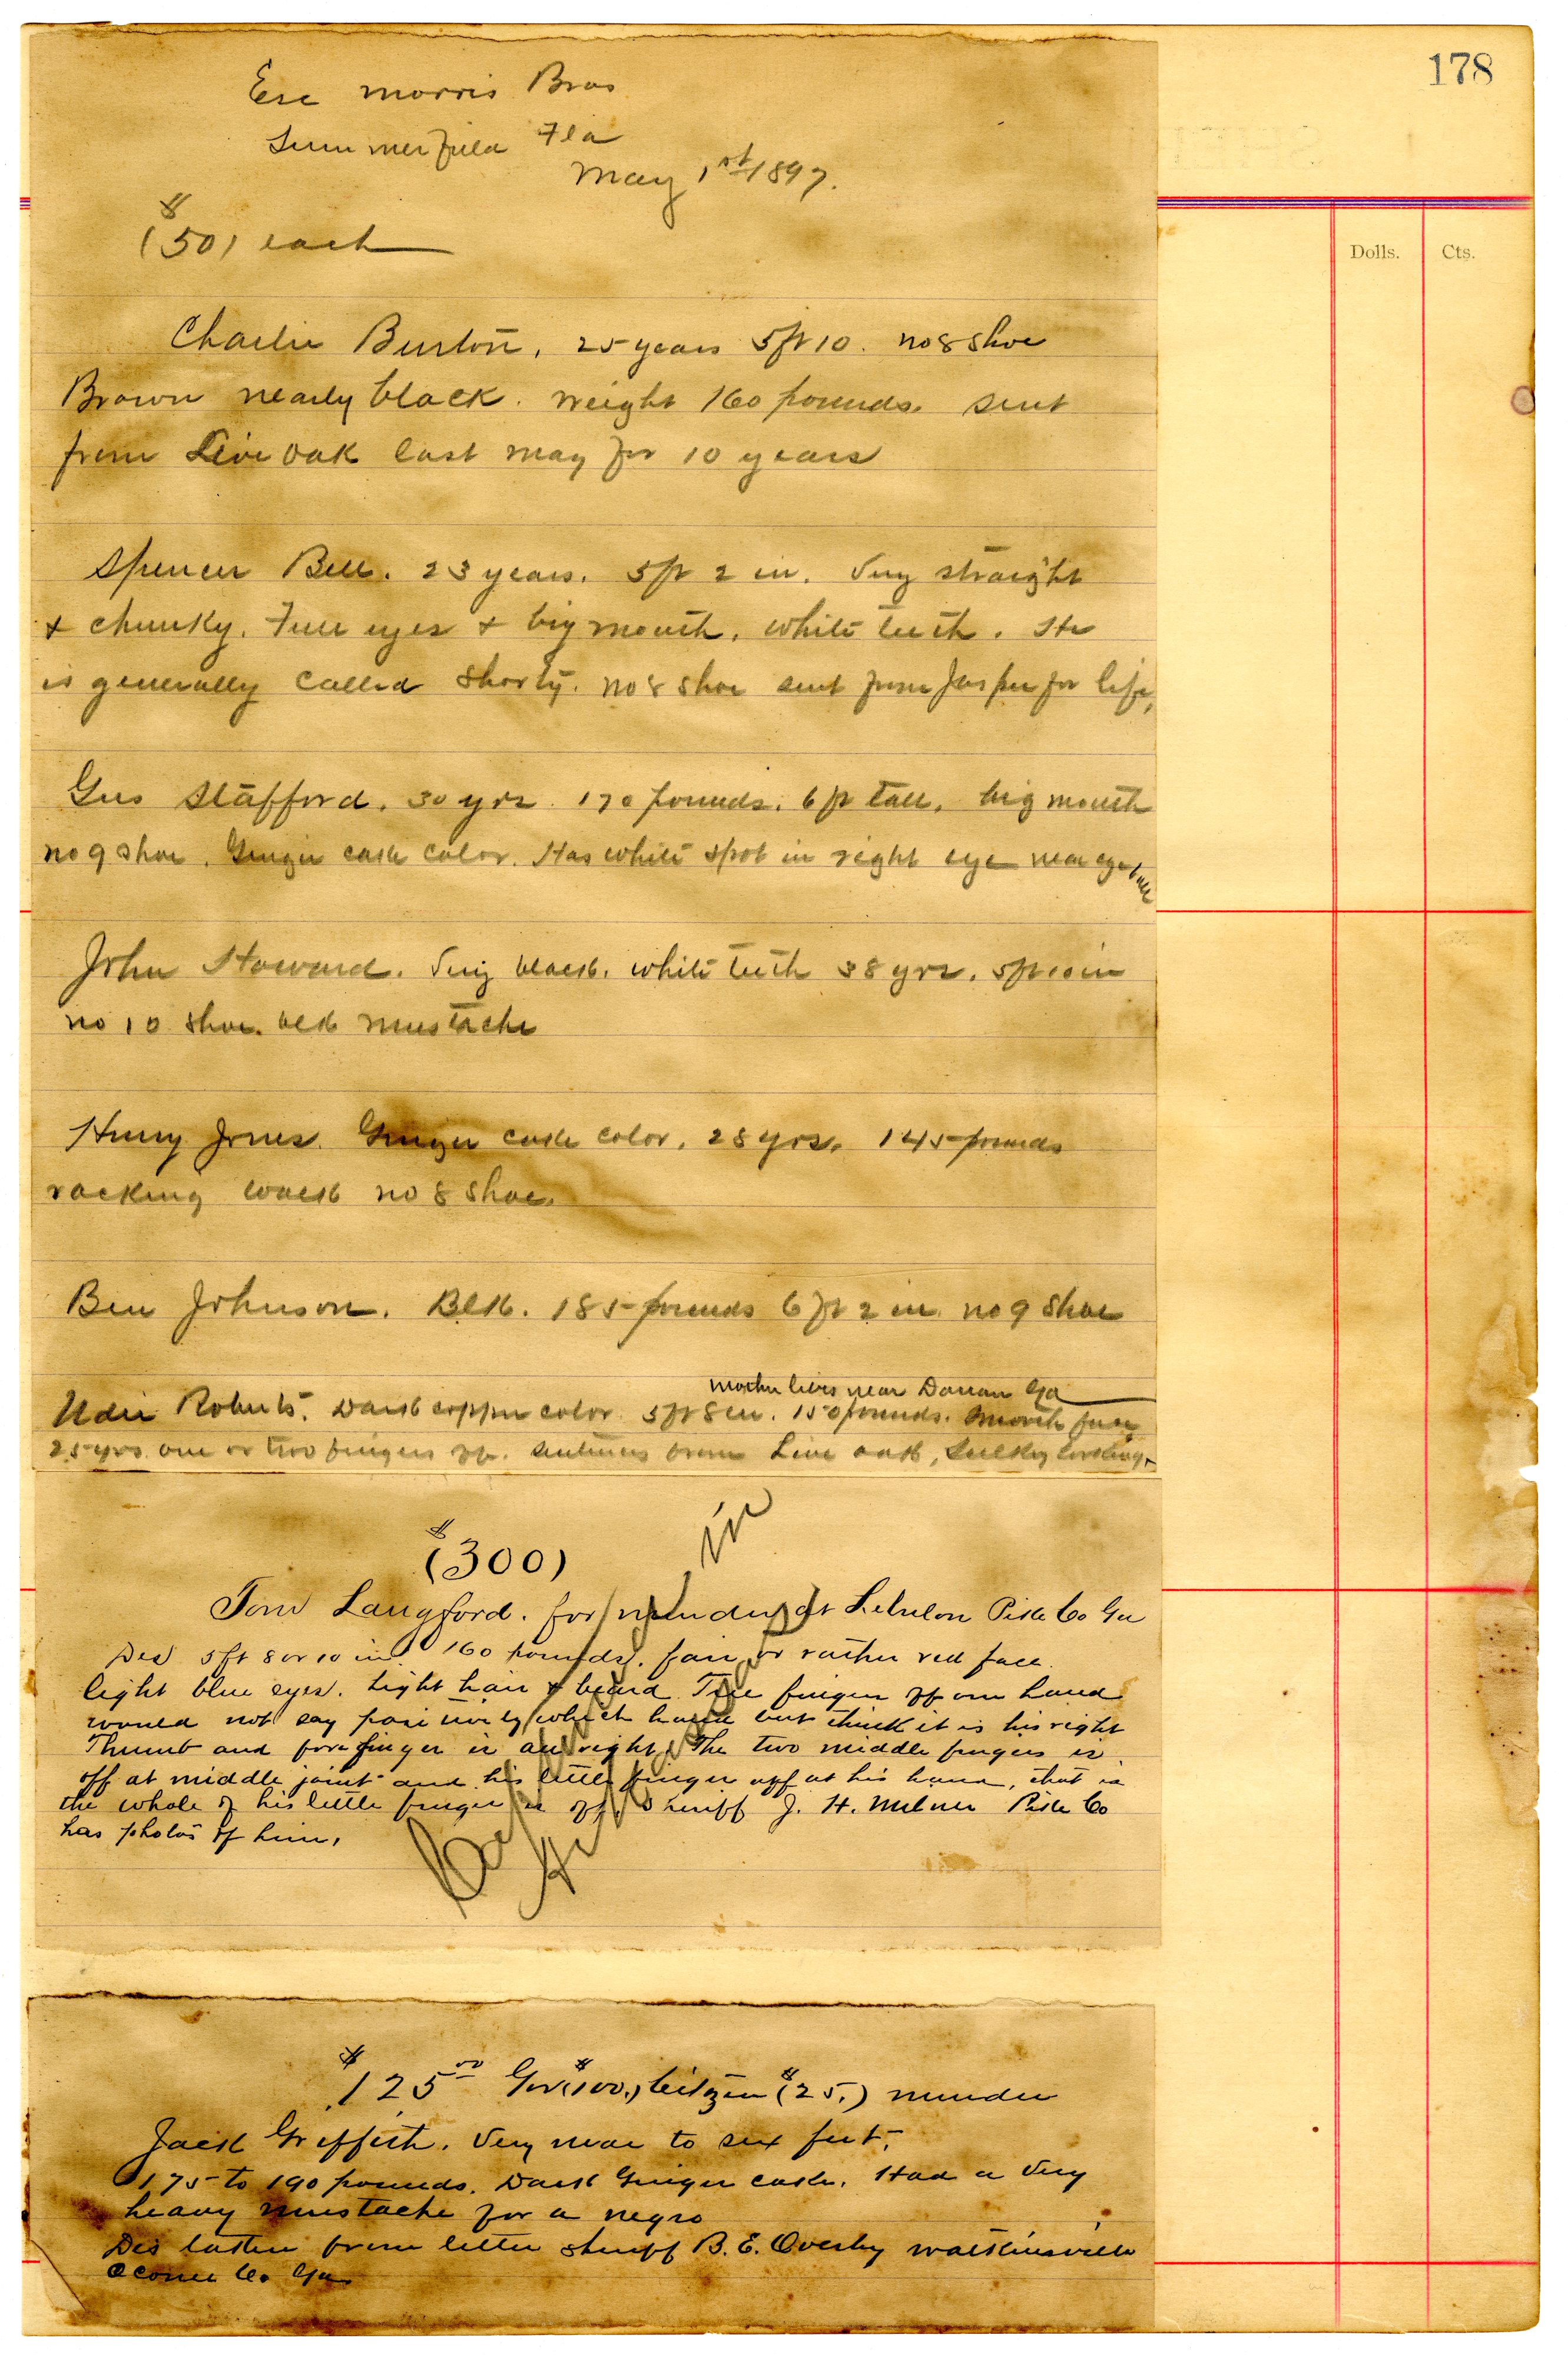 178
Dolls. Cts.
Esc Morris Bros
Summerfield Fla
May 1st 1897.
($50) each
Charlie Burton. 25 years 5 ft 10. no 8 shoe
Brown nearly black. weight 160 pounds. sent
from Live Oak last May for 10 years
Spencer Bell. 23 years. 5 ft 2 in. Very straight
& chunky. Full eyes & big mouth. white teeth. He
is generally called Shorty. no 8 shoe sent from Jasper for life,
Gus Stafford. 30 yrs. 170 pounds. 6 ft tall. big mouth
no 9 shoe. Ginger cake color. Has white spot in right eye near eye ball
John Howard. Very black. white teeth 38 yrs. 5 ft 10 in
no 10 shoe. blk mustache
Henry Jones. Ginger cake color. 28 yrs. 145 pounds
racking walk no 8 shoe.
Ben Johnson. Blk. 185 pounds 6 ft 2 in no 9 shoe
mother lives near Darien Ga
Roberts. Dark copper color 5 ft 8 in. 150 pounds. Smooth face
25 yrs one or two fingers off. from Live oak, Sulky looking.
in
($300)
Tom Langford. for murder at Zebulon Pike Co Ga
Des 5 ft 8 or 10 in 160 pounds. fair or rather red face.
light blue eyes. Light hair & beard. finger off one hand
would not say positively which hand but think it is his right
Thumb and fore finger is all right. The two middle fingers is
off at middle joint and his little finger off at his hand, that is
the whole of his little finger is off. Sheriff J. H. Milner Pike Co
has photos of him.
$125 00 Gov ($100.) Citizen ($25.) murder
Jack Griffith. Very near to six feet.
175 to 190 pounds. Dark Ginger cake. Had a very
heavy mustache for a negro
Des taken from letter sheriff B. E. Overby Watkinsville
Oconee Co. Ga